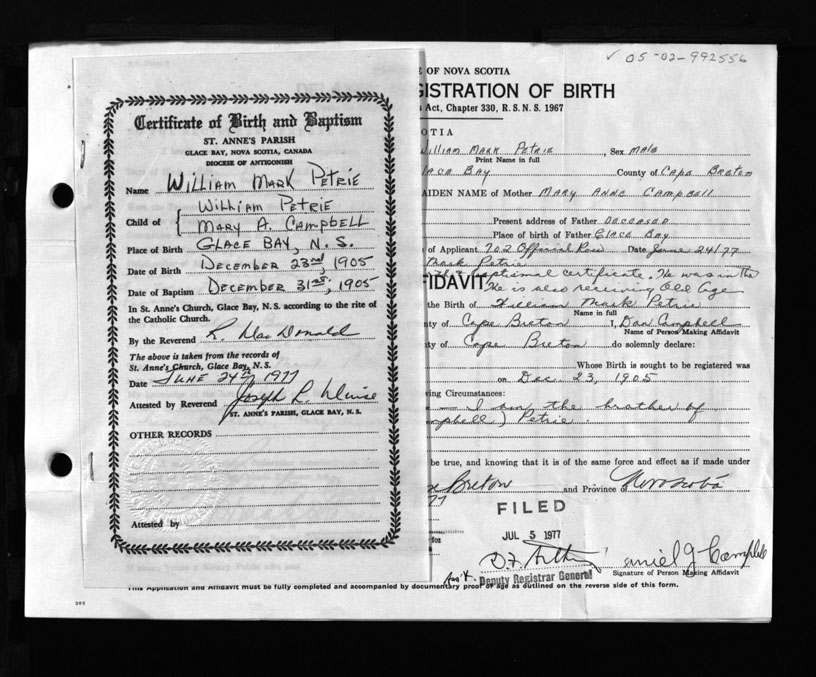 Certificate of Birth and Baptism
ST. ANNE'S PARISH
GLACE BAY, NOVA SCOTIA, CANADA
DIOCESE OF ANTIGONISH
Name William Mark Petrie
Child of { William Petrie
Mary A. Campbell
Place of Birth Glace Bay, N.S.
Date of Birth December 23rd, 1905
Date of Baptism December 31st, 1905
In St. Anne's Church, Glace Bay, N.S. according to the rite of
the Catholic Church.
By the Reverend R. MacDonald
The above is taken from the records of
St. Anne's Church, Glace Bay, N.S.
Date June 24th 1977
Attested by Reverend Joseph L.
ST. ANNE'S PARISH, GLACE BAY, N. S.
OTHER RECORDS
Attested by
✓ 05-02-992556
E OF NOVA SCOTIA
GISTRATION OF BIRTH
s Act, Chapter 330, R.S.N.S. 1967
OTIA
William Mark Petrie, Sex Male
Print Name in full
lace Bay County of Cape Breton
AIDEN NAME of Mother Mary Anne Campbell
Present address of Father Deceased
Place of birth of Father Glace Bay
of Applicant 702 Official Row Date June 24/77
Mark Petrie
baptismal certificate. He was in the
He is also receiving Old Age
FIDAVIT
the Birth of William Mark Petrie
Name in full
ty of Cape Breton I, Dan Campbell
Name of Person Making Affidavit
ty of Cape Breton do solemnly declare:
Whose Birth is sought to be registered was
on Dec. 23, 1905
ving Circumstances:
— I am the brother of
mpbell) Petrie.
be true, and knowing that it is of the same force and effect as if made under
Breton and Province of Nova Scotia
77
FILED
JUL 5 1977
for
Deputy Registrar General
aniel J Campbell
Signature of Person Making Affidavit
This Application and Affidavit must be fully completed and accompanied by documentary proof of age as outlined on the reverse side of this form.